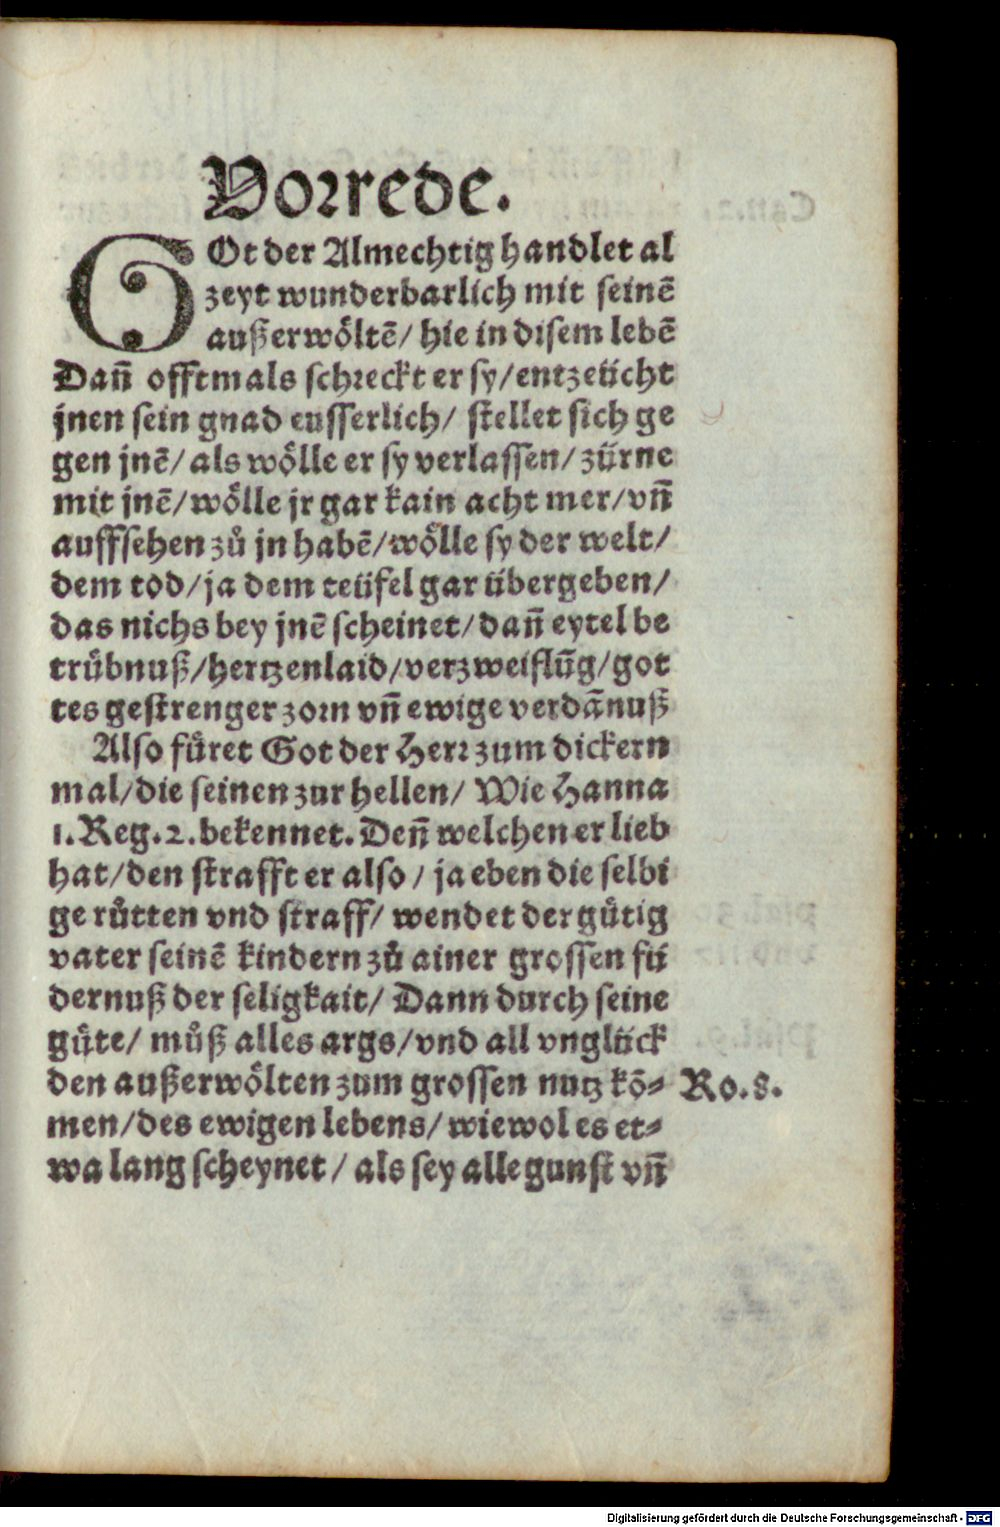 Vorrede.
GOt der Almechtig handlet al
zeyt wunderbarlich mit seinē
außerwoͤltē/ hie in disem lebē
Dañ offtmals schreckt er sy/entzeücht
jnen sein gnad eusserlich/ stellet sich ge
gen jnē/ als woͤlle er sy verlassen/ zürne
mit jnē/ woͤlle jr gar kain acht mer/ vñ
auffsehen zů jn habē/woͤlle sy der welt/
dem tod/ ja dem teüfel gar übergeben/
das nichs bey jnē scheinet/ dañ eytel be
trübnuß/hertzenlaid/verzweiflūg/got
tes gestrenger zorn vñ ewige verdānuß
Also füret Got der Herr zum dickern
mal/die seinen zur hellen/ Wie Hanna
1. Reg. 2. bekennet. Deñ welchen er lieb
hat/den strafft er also/ ja eben die selbi
ge růtten vnd straff/ wendet der gütig
vater seinē kindern zů ainer grossen fü
dernuß der seligkait/ Dann durch seine
güte/ můß alles args/vnd all vnglück
den außerwoͤlten zum grossen nutz kō⸗ Ro. 8.
men/des ewigen lebens/ wiewol es et⸗
wa lang scheynet/ als sey alle gunst vñ
Digitalisierung gefördert durch die Deutsche Forschungsgemeinschaft - DFG